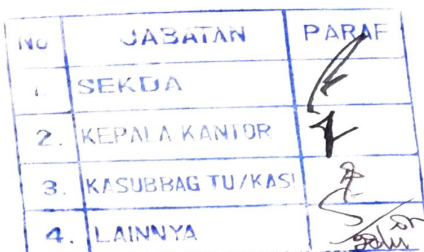 No JABATAN PARAF
1. SEKDA
2. KEPALA KANTOR
3. KASUBBAG TU/KASI
4. LAINNYA